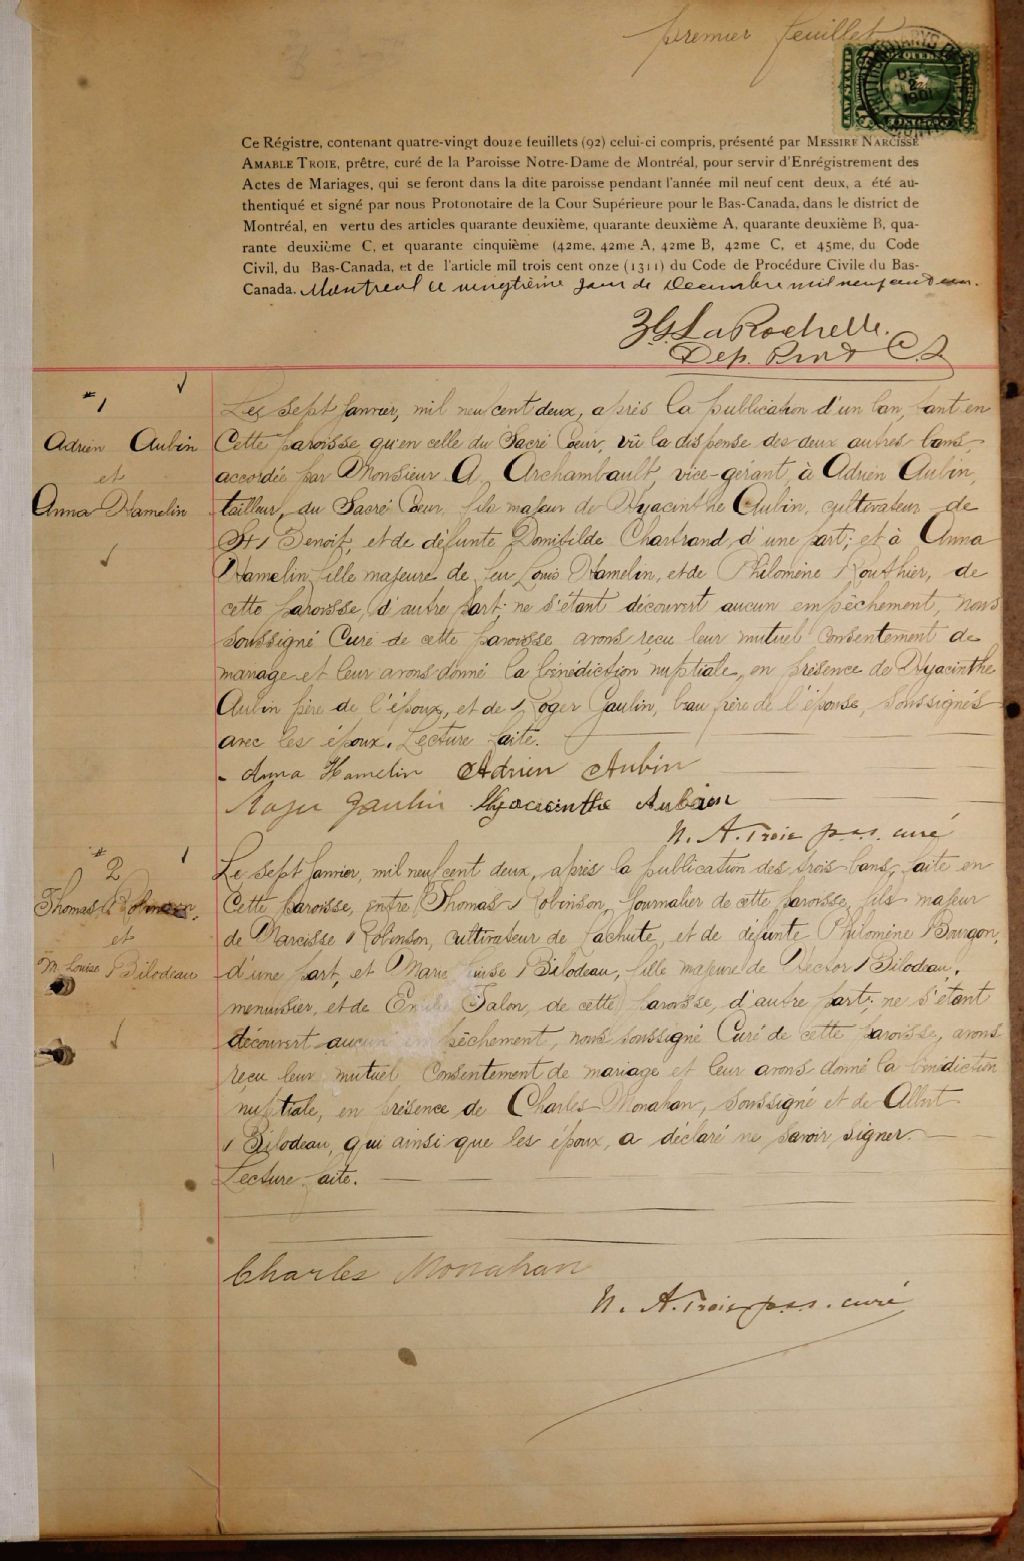 premier feuillet
LAW STAMP QUEBEC
PROTHONOTARY'S OFFICE
DEC
1901
MONTREAL
Ce Régistre, contenant quatre-vingt douze feuillets (92) celui-ci compris, présenté par MESSIRE NARCISSE
AMABLE TROIE, prêtre, curé de la Paroisse Notre-Dame de Montréal, pour servir d'Enrégistrement des
Actes de Mariages, qui se feront dans la dite paroisse pendant l'année mil neuf cent deux, a été au-
thentiqué et signé par nous Protonotaire de la Cour Supérieure pour le Bas-Canada, dans le district de
Montréal, en vertu des articles quarante deuxième, quarante deuxième A, quarante deuxième B, qua-
rante deuxième C, et quarante cinquième (42me, 42me A, 42me B, 42me C, et 45me, du Code
Civil, du Bas-Canada, et de l'article mil trois cent onze (1311) du Code de Procédure Civile du Bas-
Canada. Montreal ce vingtième jour de Decembre mil neuf cent un.
LaRochelle.
Dep. Prot C.S
#1
Adrien Aubin
et
Anna Hamelin
Le sept Janvier, mil neuf cent deux, après la publication d'un ban, tant en
Cette paroisse qu'en celle du Sacré Coeur, vû la dispense des deux autres bans,
accordée par Monsieur A. Archambault, vice-gérant, à Adrien Aubin,
tailleur, du Sacré Coeur, fils majeur de Hyacinthe Aubin, cultivateur de
St Benoit, et de défunte Domitilde Chartrand, d'une part; et à Anna
Hamelin, fille majeure de feu Louis Hamelin, et de Philomène Routhier, de
cette paroisse, d'autre part; ne s'étant découvert aucun empêchement, nous
soussigné Curé de cette paroisse avons reçu leur mutuel consentement de
mariage et leur avons donné la bénédiction nuptiale, en présence de Hyacinthe
Aubin père de l'époux, et de Roger Gaulin, beau frère de l'épouse, soussignés
avec les époux. Lecture faite.
Anna Hamelin Adrien Aubin
Roger Gaulin Hyacinthe Aubin
N. A. Troie p.s.s. curé
#2
Thomas Robinson
et
M. Louise Bilodeau
Le sept Janvier, mil neuf cent deux, après la publication des trois bans, faite en
Cette paroisse, entre Thomas Robinson, Journalier de cette paroisse, fils majeur
de Narcisse Robinson, cultivateur de Lachute, et de défunte Philomène Bourgon,
d'une part, et Marie Louise Bilodeau, fille majeure de Hector Bilodeau,
menuisier, et de Emilie Talon, de cette paroisse, d'autre part; ne s'étant
découvert aucun empêchement, nous soussigné Curé de cette paroisse, avons
reçu leur mutuel consentement de mariage et leur avons donné la bénédiction
nuptiale, en présence de Charles Monahan, soussigné et de Albert
Bilodeau, qui ainsi que les époux, a déclaré ne savoir signer.
Lecture faite.
Charles Monahan
N. A. Troie p.s.s. curé